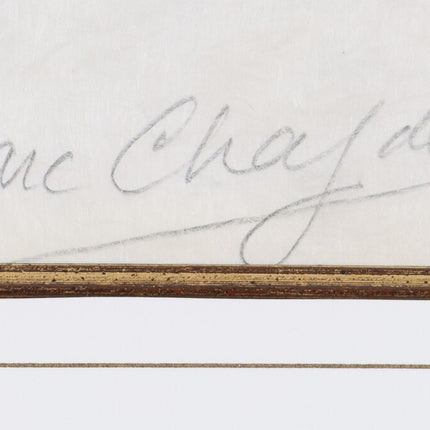 arc Chaga